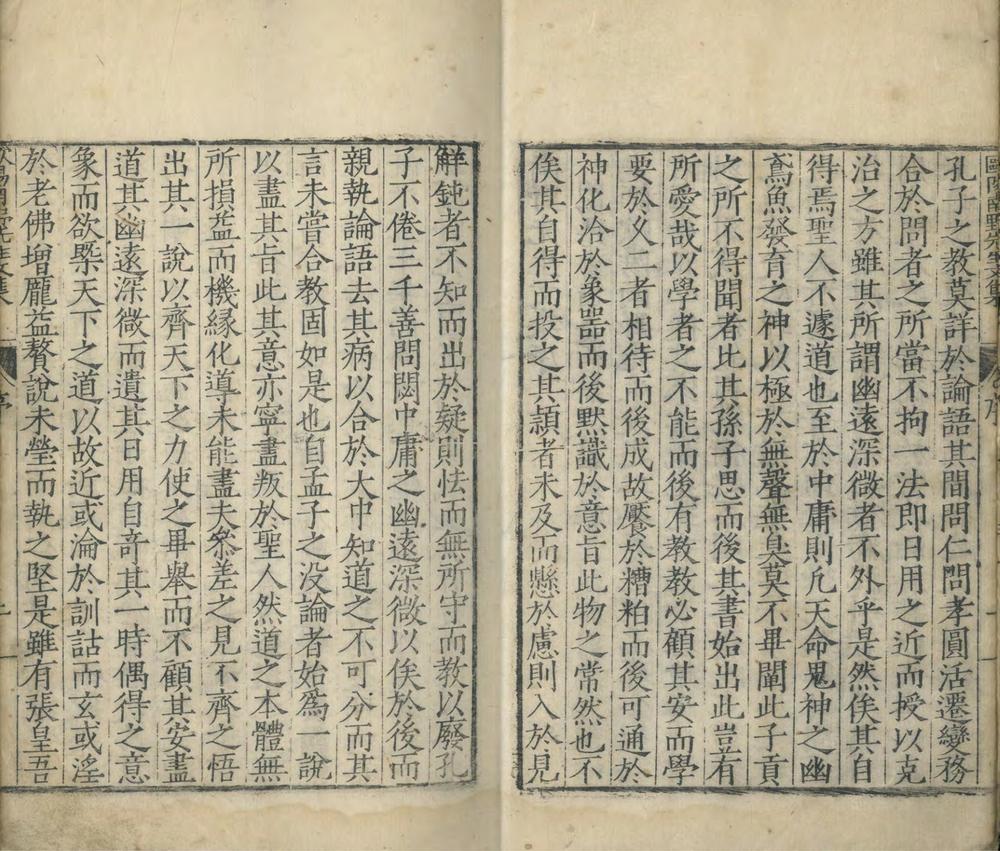 歐陽南野先生文集
序
孔子之教莫詳於論語其間問仁問孝圓活遷變務
合於問者之所當不拘一法即日用之近而授以克
治之方雖其所謂幽遠深微者不外乎是然俟其自
得焉聖人不遽道也至於中庸則凡天命鬼神之幽
鳶魚發育之神以極於無聲無臭莫不畢闡此子貢
之所不得聞者比其孫子思而後其書始出此豈有
所愛哉以學者之不能而後有教教必顧其安而學
要於乂二者相待而後成故饜於糟粕而後可通於
神化洽於象噐而後黙識於意旨此物之常然也不
俟其自得而投之其頴者未及而懸於慮則入於見
觧鈍者不知而出於疑則怯而無所守而教以廢孔
子不倦三千善問閎中庸之幽遠深微以俟於後而
親執論語去其病以合於大中知道之不可分而其
言未嘗合教固如是也自孟子之没論者始為一說
以盡其旨此其意亦寧盡叛於聖人然道之本體無
所損益而機縁化導未能盡夫叅差之見不齊之悟
出其一說以齊天下之力使之畢舉而不顧其安盡
道其幽遠深微而遺其日用自竒其一時偶得之意
象而欲槩天下之道以故近或淪於訓詁而玄或淫
於老佛增龐益贅說未瑩而執之堅是雖有張皇吾
序